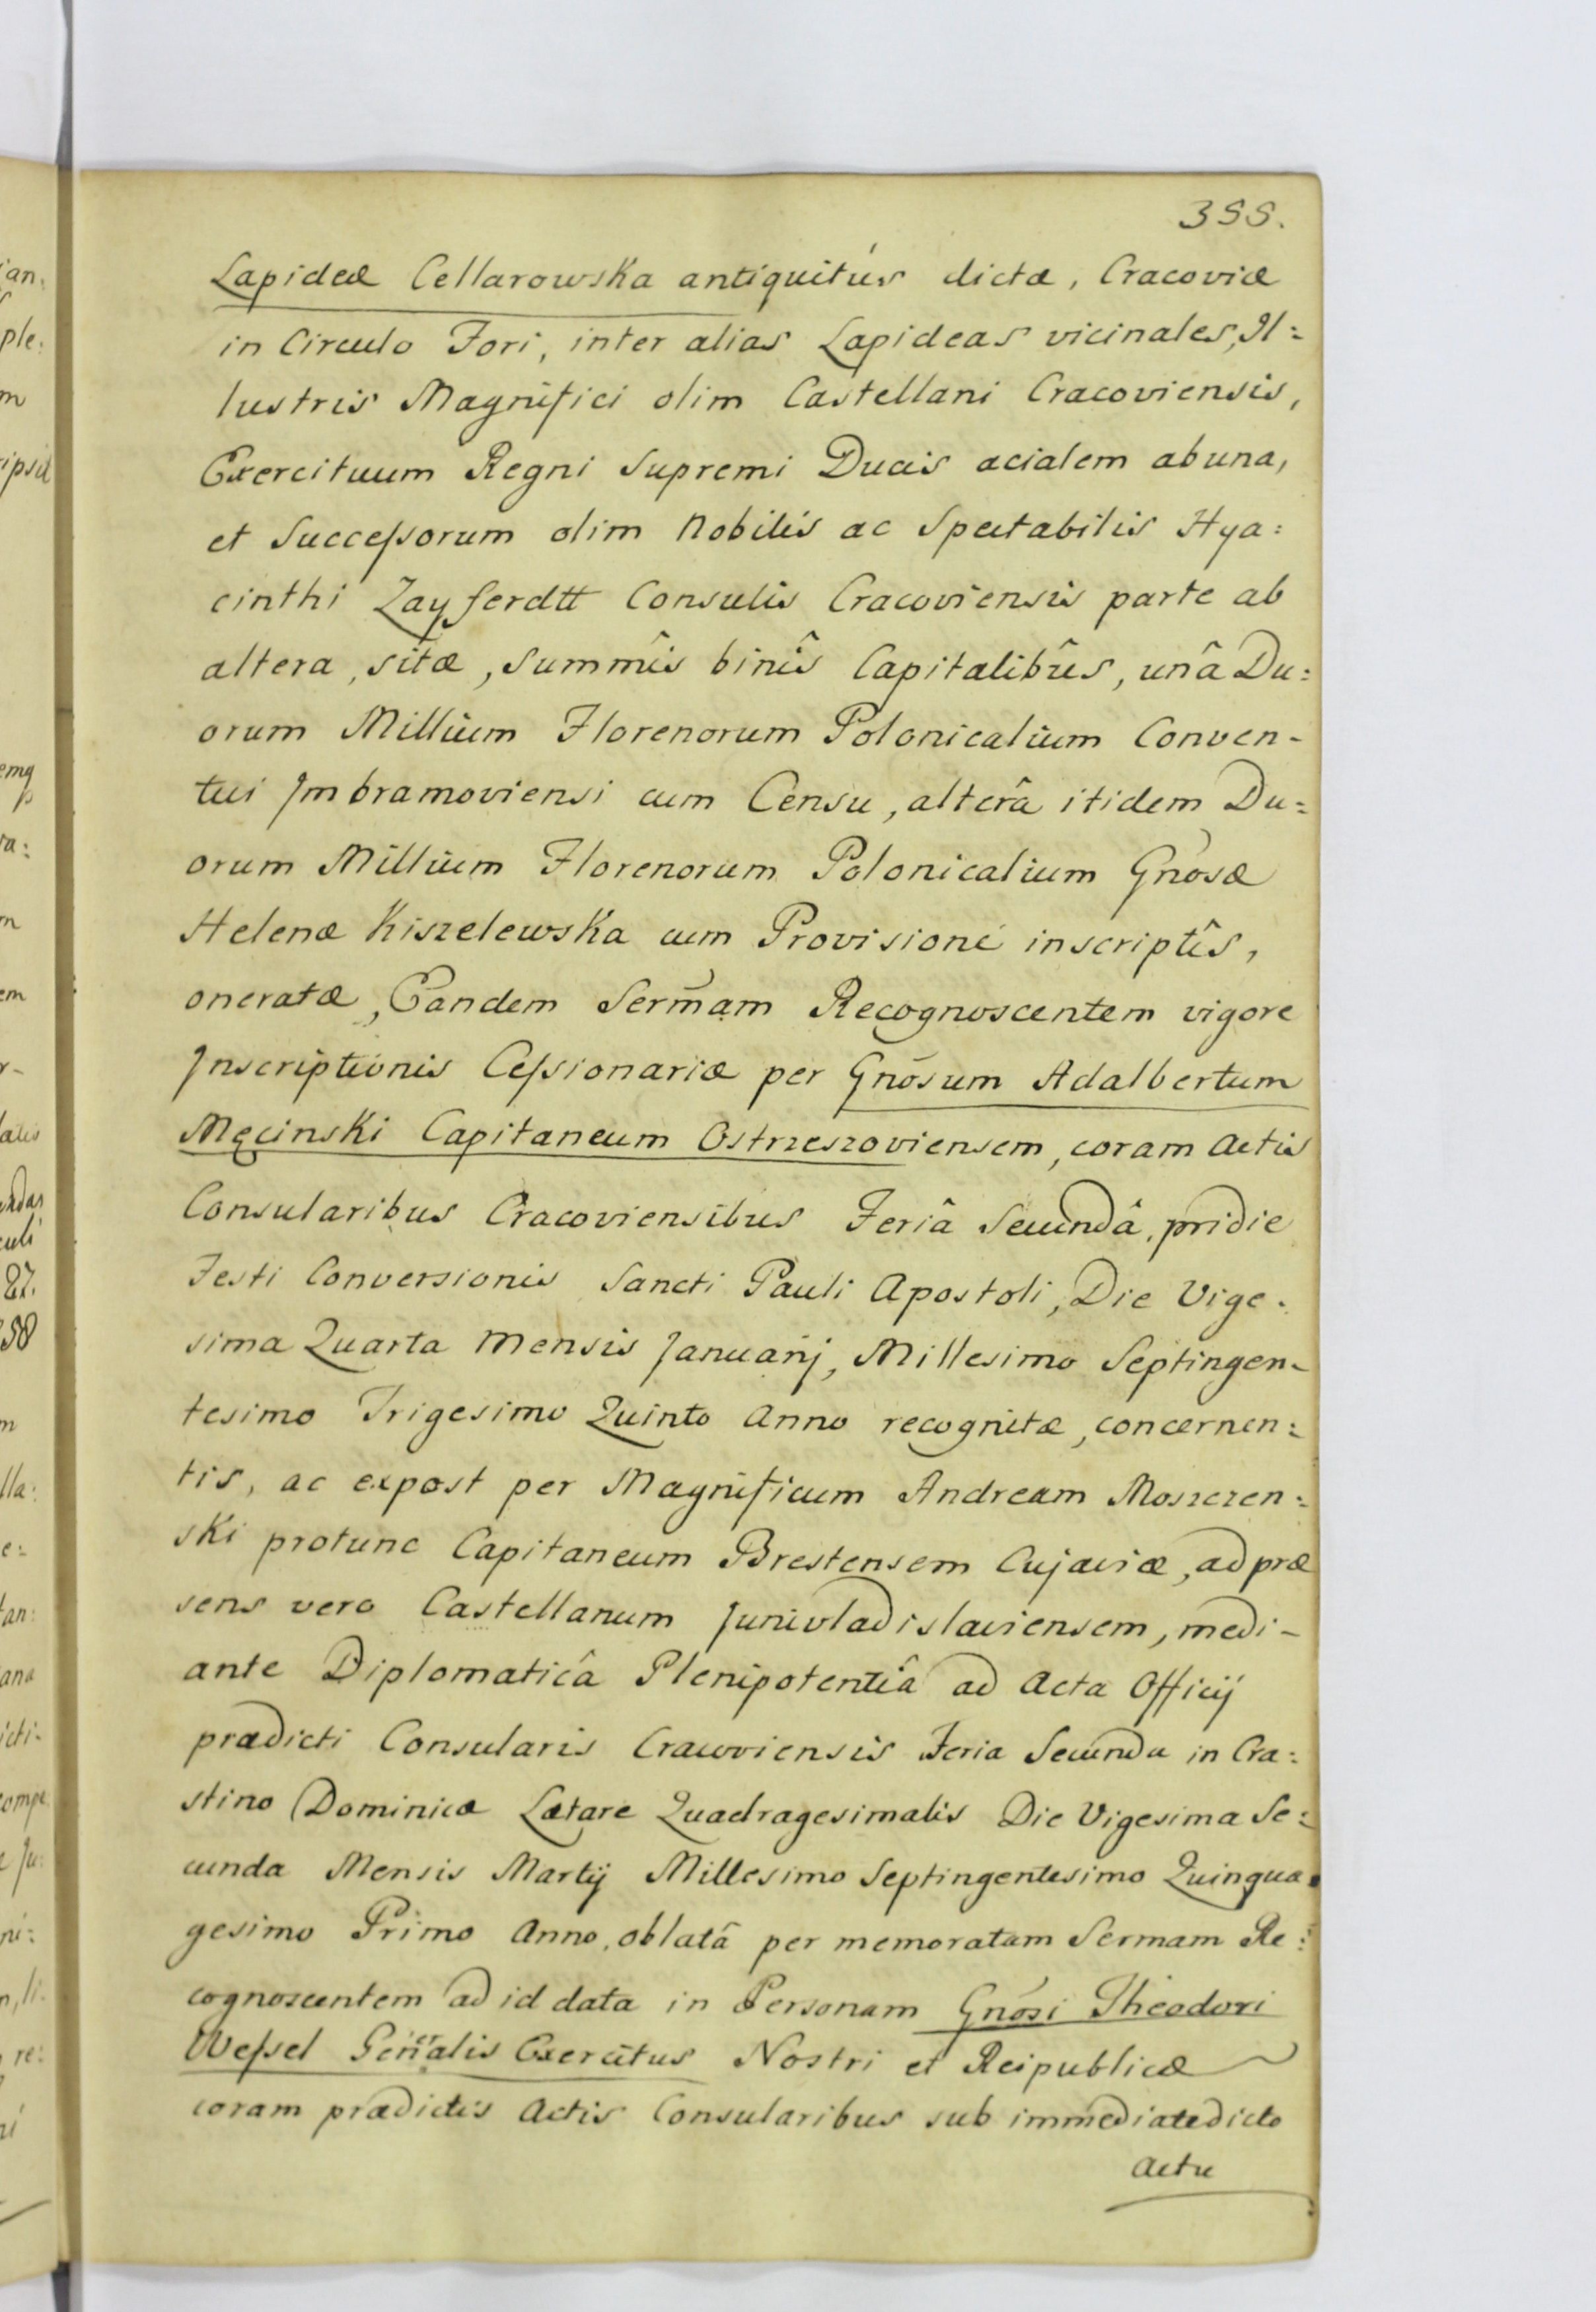 355.
Lapideæ Cellarowska antiquitús dictæ, Cracoviæ
in Circulo Fori, inter alias Lapideas vicinales, Il=
lustris Magnifici olim Castellani Cracoviensis,
Exercituum Regni Supremi Ducis acialem ab una,
et Successorum olim Nobilis ac Spectabilis Hya=
cinthi Zayferdtt Consulis Cracoviensis parte ab
altera, sitæ, Summîs binîs Capitalibûs, unâ Du=
orum Millium Florenorum Polonicalium Conven-
tui Imbramoviensi cum Censu, alterâ itidem Du=
orum Millium Florenorum Polonicalium Gnosæ
Helenæ Kiszelewska cum Provisione inscriptîs,
oneratæ, Eandem Sermam Recognoscentem vigore
Inscriptionis Cessionariæ per Gnosum Adalbertum
Męcinski Capitaneum Ostrzeszoviensem, coram Actis
Consularibus Cracoviensibus Feriâ Secundâ, pridie
Festi Conversionis Sancti Pauli Apostoli, Die Vige-
sima Quarta Mensis Januarij, Millesimo Septingen-
tesimo Trigesimo Quinto Anno recognitæ, concernen=
tis, ac expost per Magnificum Andream Moszczen=
ski protunc Capitaneum Brestensem Cujaviæ, ad præ
sens vero Castellanum Junivladislaviensem, medi-
ante Diplomaticâ Plenipotentiâ ad Acta Officij
prædicti Consularis Cracoviensis Feria Secunda in Cra=
stino Dominicæ Lætare Quadragesimalis Die Vigesima Se=
cunda Mensis Martij Millesimo Septingentesimo Quinqua=
gesimo Primo Anno, oblatâ per memoratam Sermam Re=
cognoscentem ad id data in Personam Gnosi Theodori
Wessel Generalis Exercitus Nostri et Reipublicæ
coram prædictis Actis Consularibus sub immediatedicto
Actu